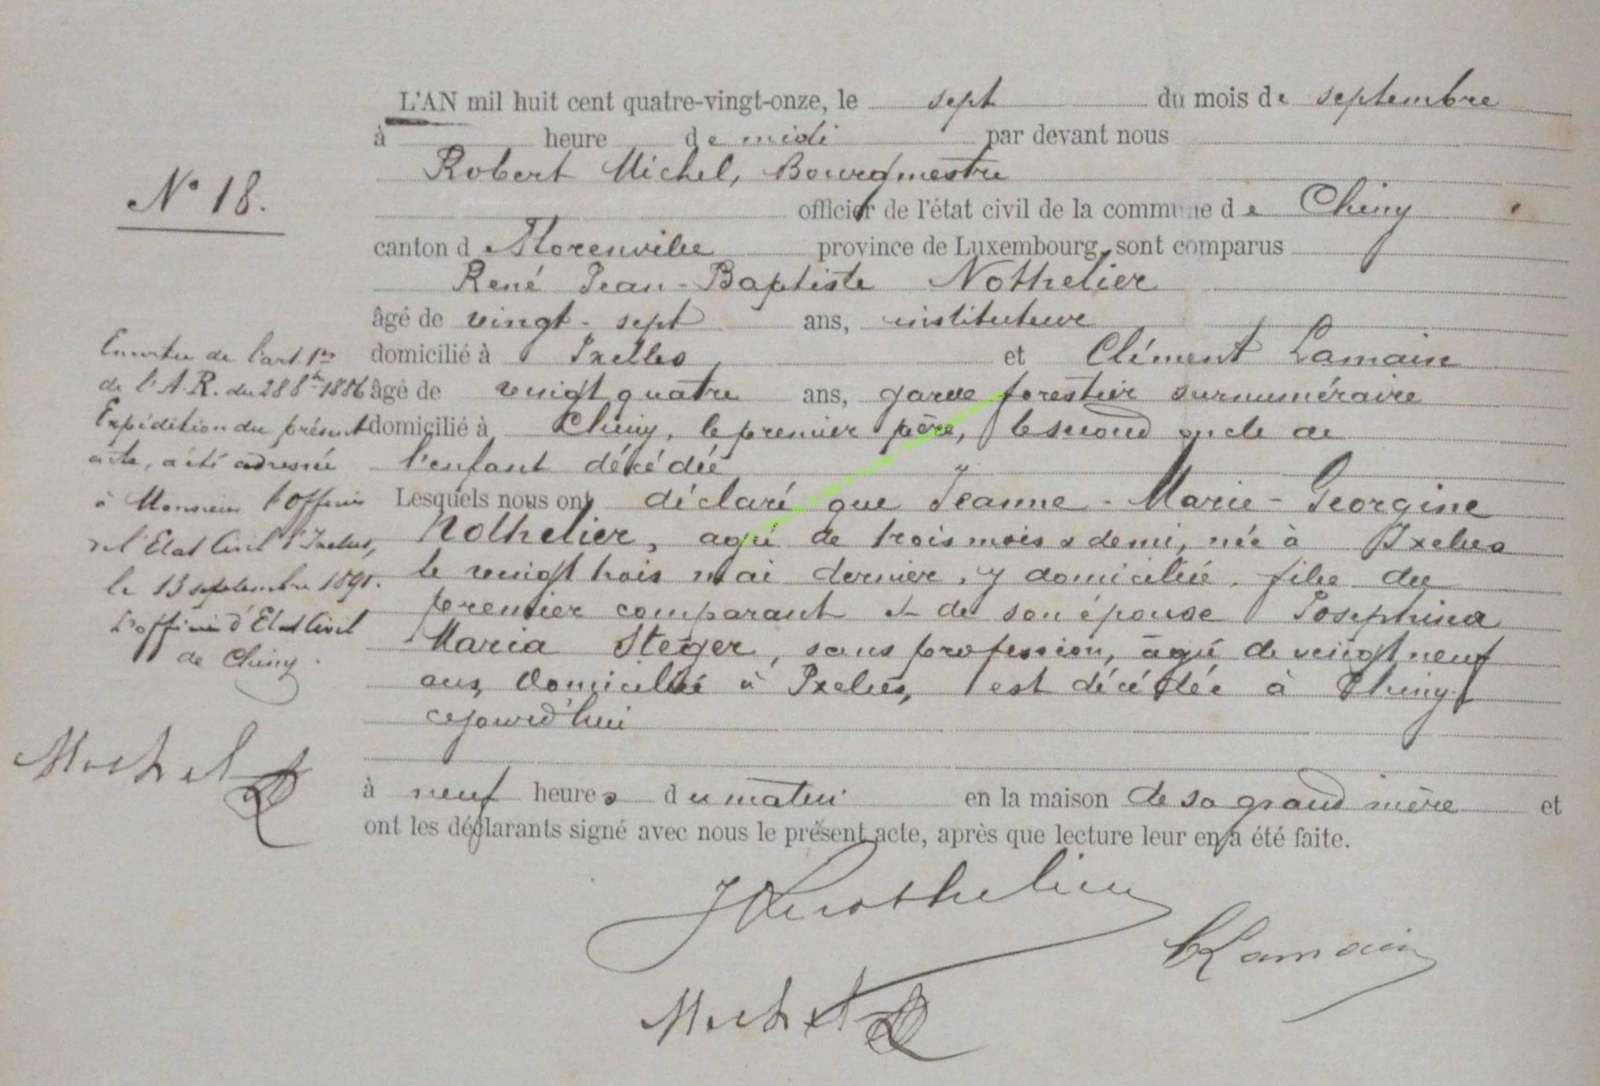 L'AN mil huit cent quatre-vingt-onze, le sept du mois de septembre
à heure de midi par devant nous
Robert Michel, Bourgmestre
N° 18.
officier de l'état civil de la commune de Chiny
canton de Florenville province de Luxembourg, sont comparus
René Jean-Baptiste Nothelier
âgé de vingt-sept ans, instituteur
domicilié à Ixelles et Clément Lamain
âgé de vingt quatre ans, garde forestier surnuméraire
domicilié à Chiny, le premier père, le second oncle de
l'enfant décédée
Lesquels nous ont déclaré que Jeanne-Marie-Georgine
Nothelier, agée de trois mois & demi, née à Ixelles
le vingt trois mai dernier, y domiciliée, fille du
premier comparant et de son épouse Josephina
Maria Steger, sans profession, âgée de vingt neuf
ans, domiciliée à Ixelles, est décédée à Chiny
cejourd'hui
à neuf heures du matin en la maison de sa grand mère et
ont les déclarants signé avec nous le présent acte, après que lecture leur en a été faite.
En vertu de l'art. 1er
de l'A.R. du 28 8bre 1886
Expédition du présent
acte, a été adressée
à Monsieur l'Officier
de l'Etat Civil d'Ixelles,
le 13 septembre 1891.
L'officier d'Etat Civil
de Chiny.
Michel
Nothelier
Lamain
Michel